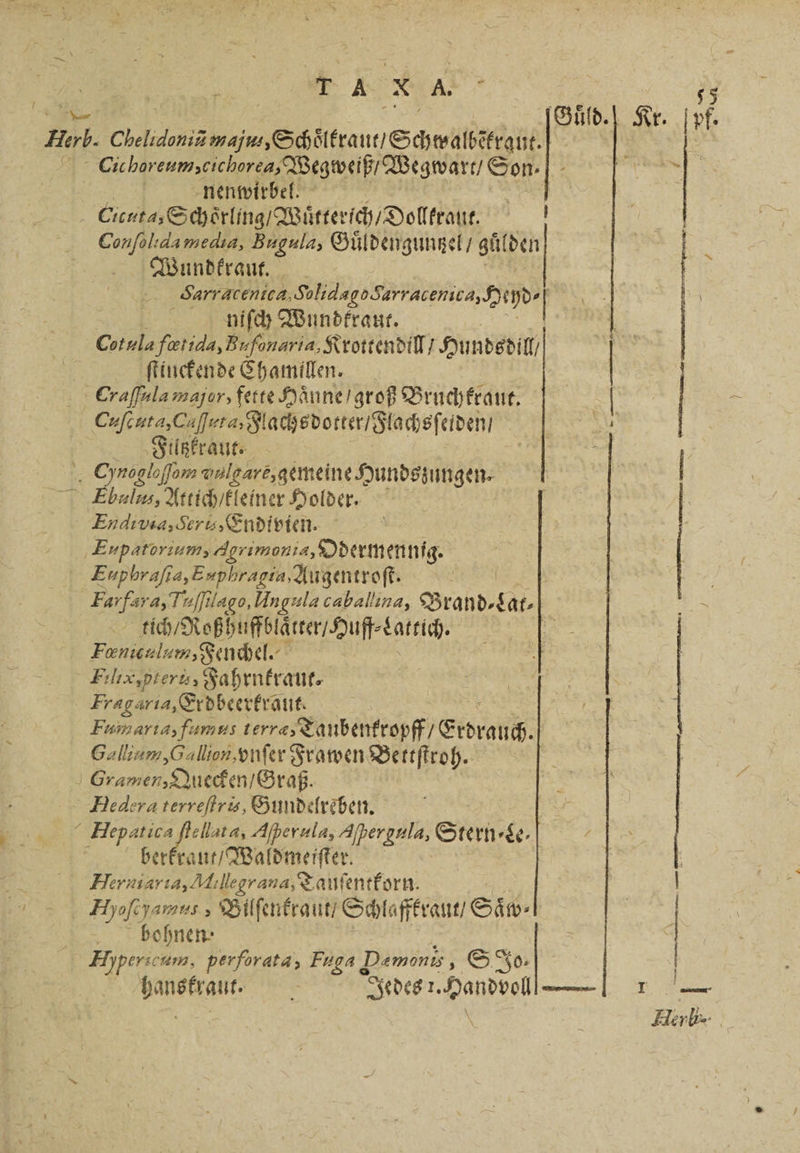 TAXA.
55
Gůlb. Kr. pf.
Herb. Chelidoniũ majus, Schölkraut/Schwalbekraut.
Cichoreum, cichorea, Wegweiß/Wegwart/ Son-
nenwirbel.
Cicuta, Schörling/Wütterich/Dollkraut.
Consolida media, Bugula, Güldengunzel/ gulden
Wundkraut.
Sarracenica, Solidago Sarracenica, Heyd-
nisch Wundkraut.
Cotula fœtida, Bufonaria, Krottendill/ Hundsdill/
stinckende Chamillen.
Crassula major, fette Hånne/groß Bruchkraut.
Cuscuta, Cassuta, Flachsdotter/Flachsseiden/
Filtzkraut.
Cynoglossom vulgare, gemeine Hundszungen.
Ebulus, Attich/kleiner Holder.
Endivia, Seris, Endivien.
Eupatorium, Agrimonia, Odermennig.
Euphrasia, Euphragia, Augentrost.
Farfara, Tussilago, Ungula caballina, Brand-Lat-
tich/Roßhuffblåtter/Huff-Lattich.
Fœniculum, Fenchel.
Filix, pteris, Fahrnkraut.
Fragaria, Erdbeerkraut.
Fumaria, fumus terræ, Taubenkropff/ Erdrauch.
Gallium, Gallion, vnser Frawen Bettstroh.
Gramen, Quecken/Graß.
Hedera terrestris, Gundelreben.
Hepatica stellata, Asperula, Aspergula, Stern-Le-
berkraut/Waldmeister.
Herniaria, Millegrana, Tausentkorn.
Hyoscyamus, Bilsenkraut/ Schlaffkraut/ Såw-
bohnen.
Hypericum, perforata, Fuga Dæmonis, S. Jo-
hanskraut. Jedes 1. Handvoll — 1 —
Herb.